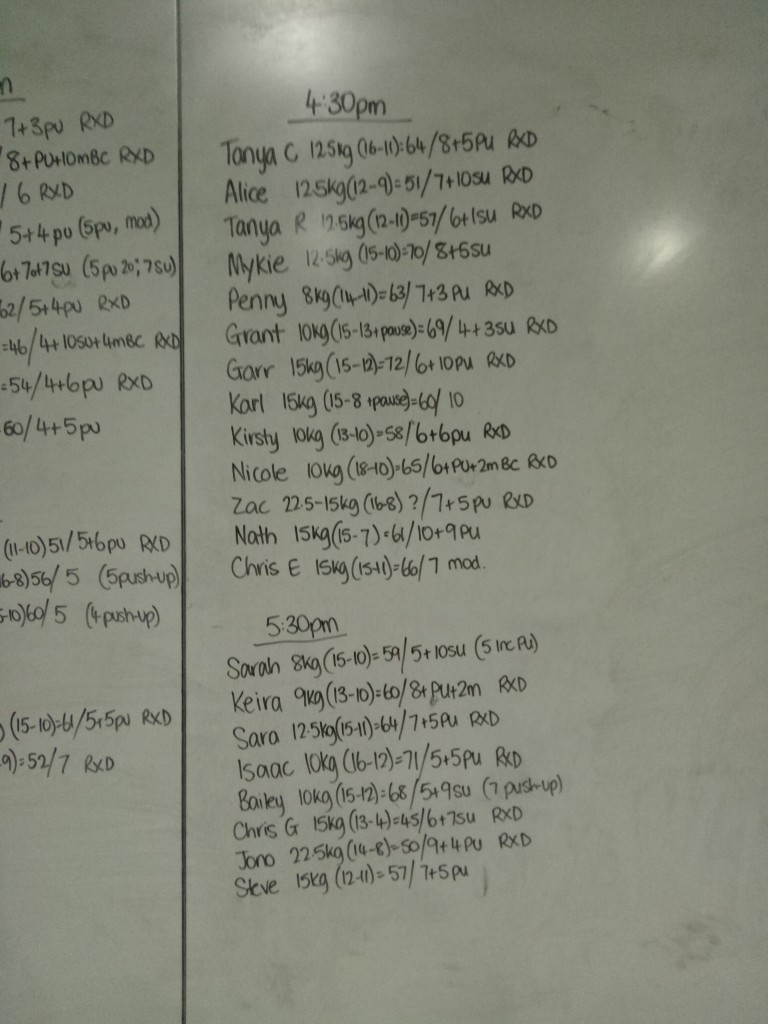 n
7+3pu RXD
8+PU+10mBC RXD
/ 6 RXD
5+4pu (5pu, mod)
6+7at7su (5pu 20; 7su)
62/5+4pu RXD
=46/4+10su+4mBC RXD
=54/4+6pu RXD
60/4+5pu
(11-10)51/5+6pu RXD
6-8)56/5 (5push-up)
5-10)60/5 (4push-up)
(15-10)=61/5+5pu RXD
9)=52/7 RXD
4:30pm
Tanya C 12.5kg (16-11)=64/8+5PU RXD
Alice 12.5kg(12-9)=51/7+10su RXD
Tanya R 12.5kg(12-11)=57/6+1su RXD
Mykie 12.5kg (15-10)=70/8+5su
Penny 8kg(14-11)=63/7+3PU RXD
Grant 10kg(15-13+pause)=69/4+3su RXD
Garr 15kg(15-12)=72/6+10PU RXD
Karl 15kg (15-8 +pause)=60/10
Kirsty 10kg (13-10)=58/6+6pu RXD
Nicole 10kg(18-10)=65/6+PU+2mBC RXD
Zac 22.5-15kg(16-8) ?/7+5pu RXD
Nath 15kg(15-7)=61/10+9PU
Chris E 15kg(15-11)=66/7 mod.
5:30pm
Sarah 8kg(15-10)=59/5+10su (5 inc PU)
Keira 9kg(13-10)=60/8+PU+2m RXD
Sara 12.5kg(15-11)=64/7+5PU RXD
Isaac 10kg (16-12)=71/5+5PU RXD
Bailey 10kg(15-12)=68/5+9su (7 push-up)
Chris G 15kg(13-4)=45/6+7su RXD
Jono 22.5kg(14-8)=50/9+4PU RXD
Steve 15kg (12-11)=57/7+5pu